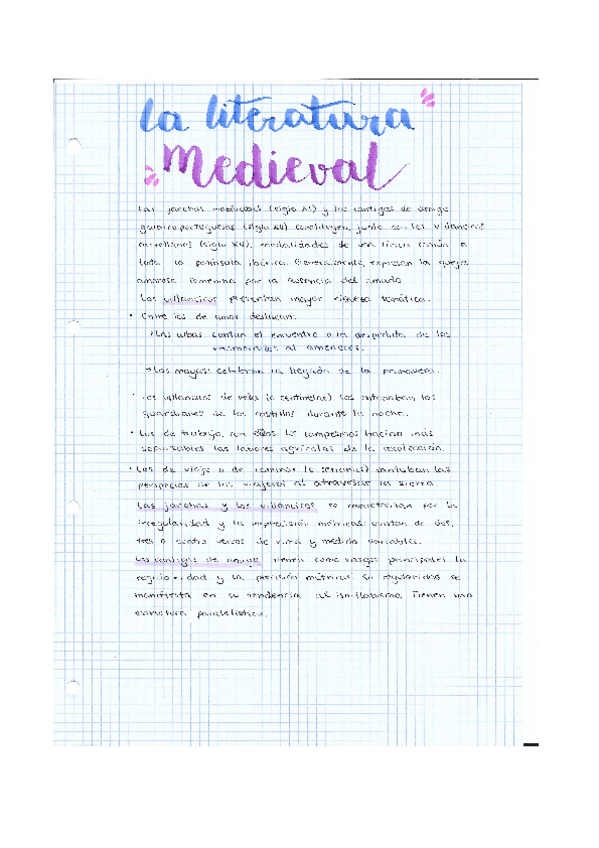 La literatura
Medieval
Las jarchas mozárabes (siglo XI) y las cantigas de amigo
galaico portuguesas (siglo XII) constituyen, junto con los villancicos
castellanos (siglo XV), modalidades de una lírica común a
toda la península ibérica. Generalmente, expresan la queja
amorosa femenina por la ausencia del amado
Los villancicos presentan mayor riqueza temática.
• Entre los de amor destacan:
Las albas cantan el encuentro o la despedida de los
enamorados al amanecer.
→ Las mayas: celebran la llegada de la primavera.
• Los villancicos de vela (o centinelas) los entonaban los
guardianes de los castillos durante la noche.
• Los de trabajo, con ellos los campesinos hacían más
soportables las labores agrícolas de la recolección.
• Los de viaje o de caminar (o serranas) cantaban las
peripecias de los viajeros al atravesar la sierra.
Las jarchas y los villancicos se caracterizan por la
irregularidad y la imprecisión métricas: constan de dos,
tres o cuatro versos de rima y medida variables.
Las cantigas de amigo tienen como rasgos principales la
regularidad y la precisión métrica. Su regularidad se
manifiesta en su tendencia al isosilabismo. Tienen una
estructura paralelística.